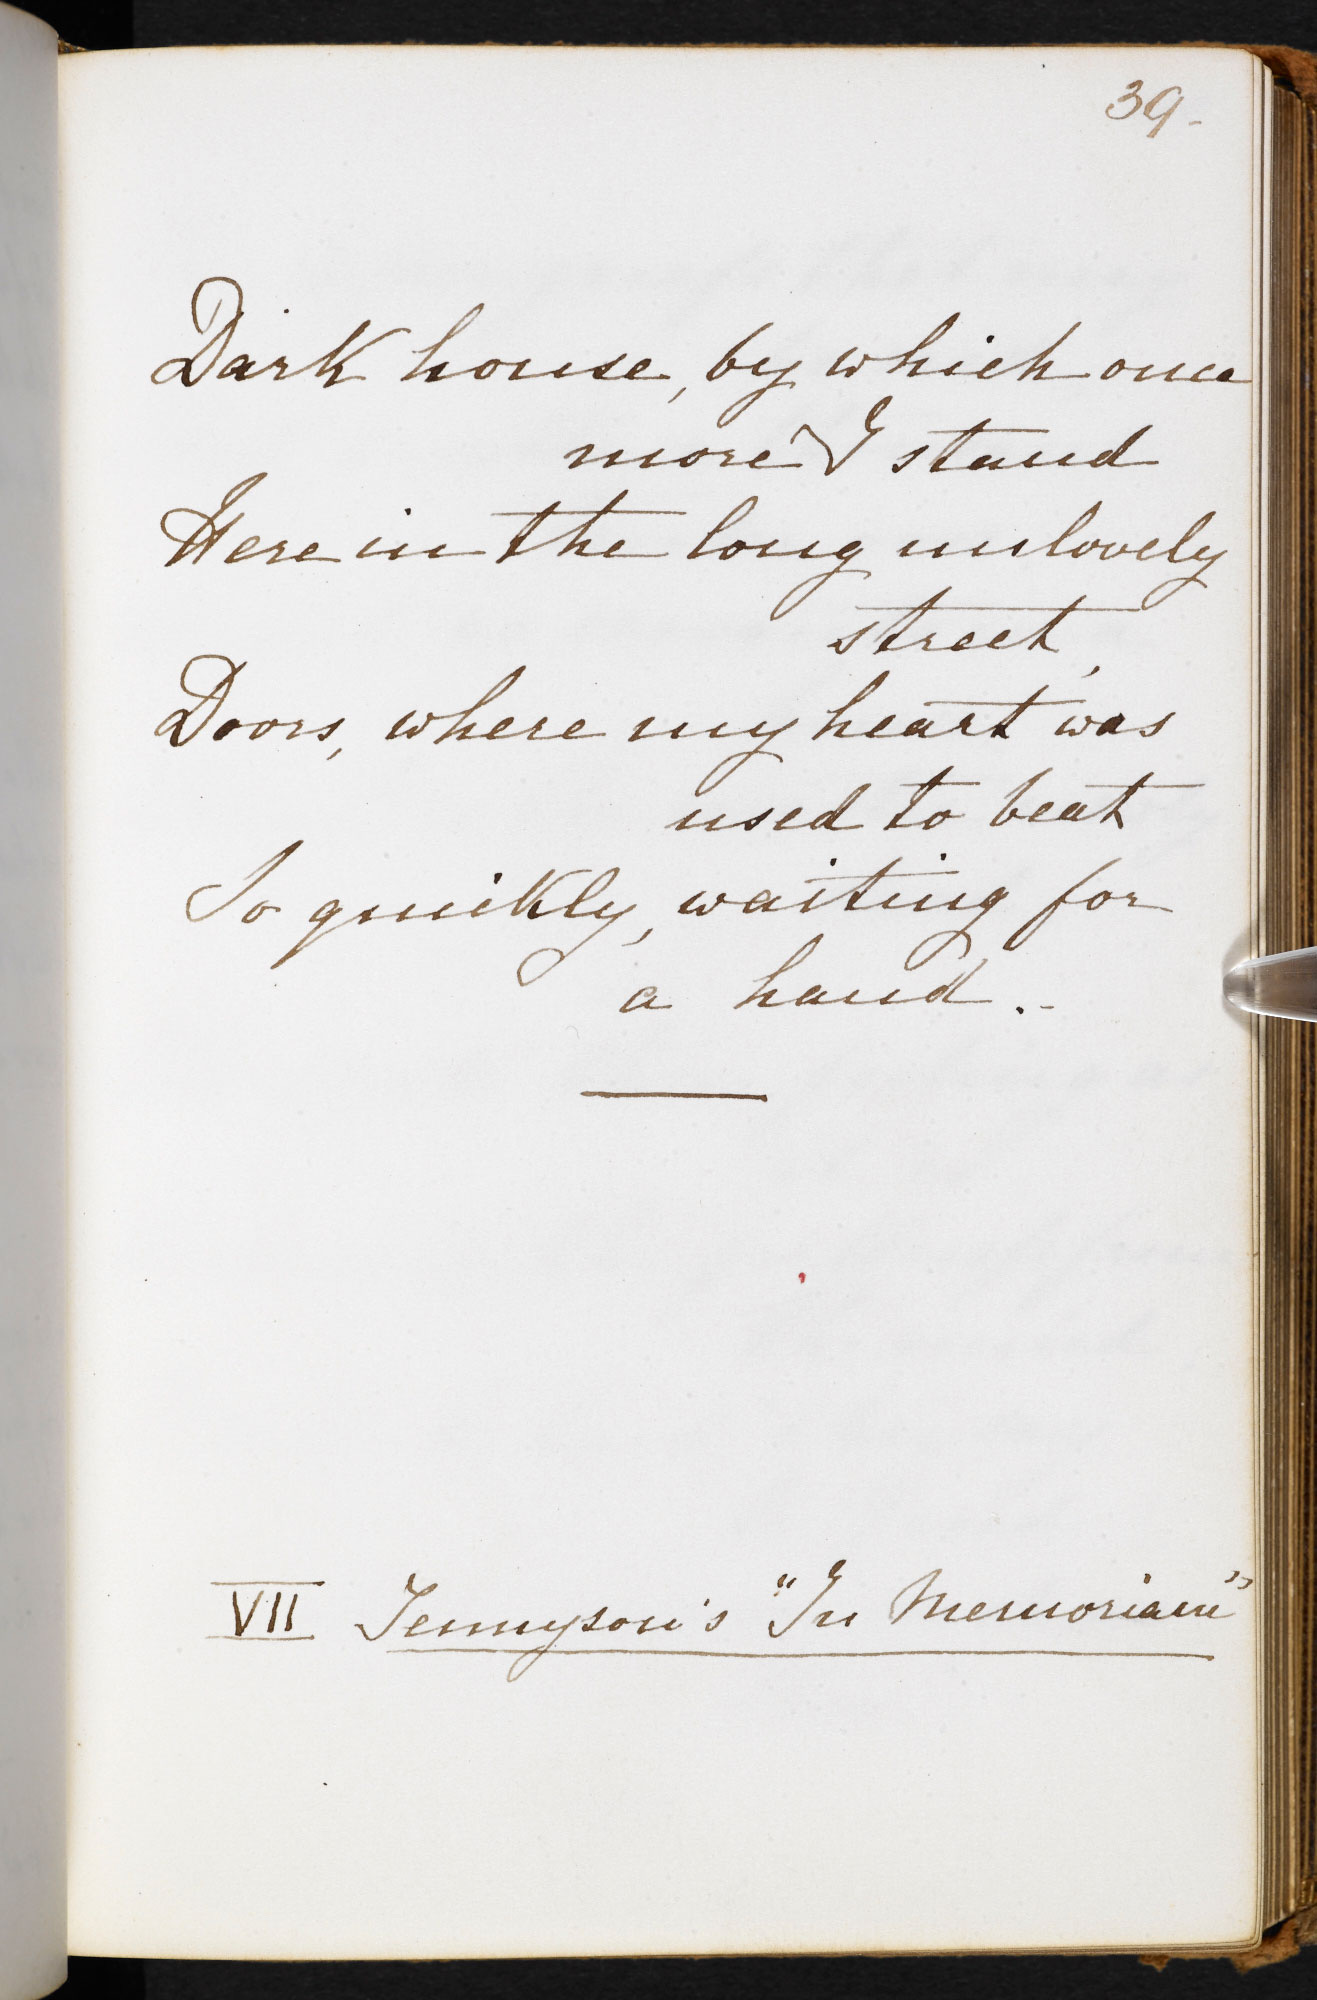 39.
Dark house, by which once
more I stand
Here in the long unlovely
street,
Doors, where my heart was
used to beat
So quickly, waiting for
a hand..
VII Tennyson's "In Memoriam"